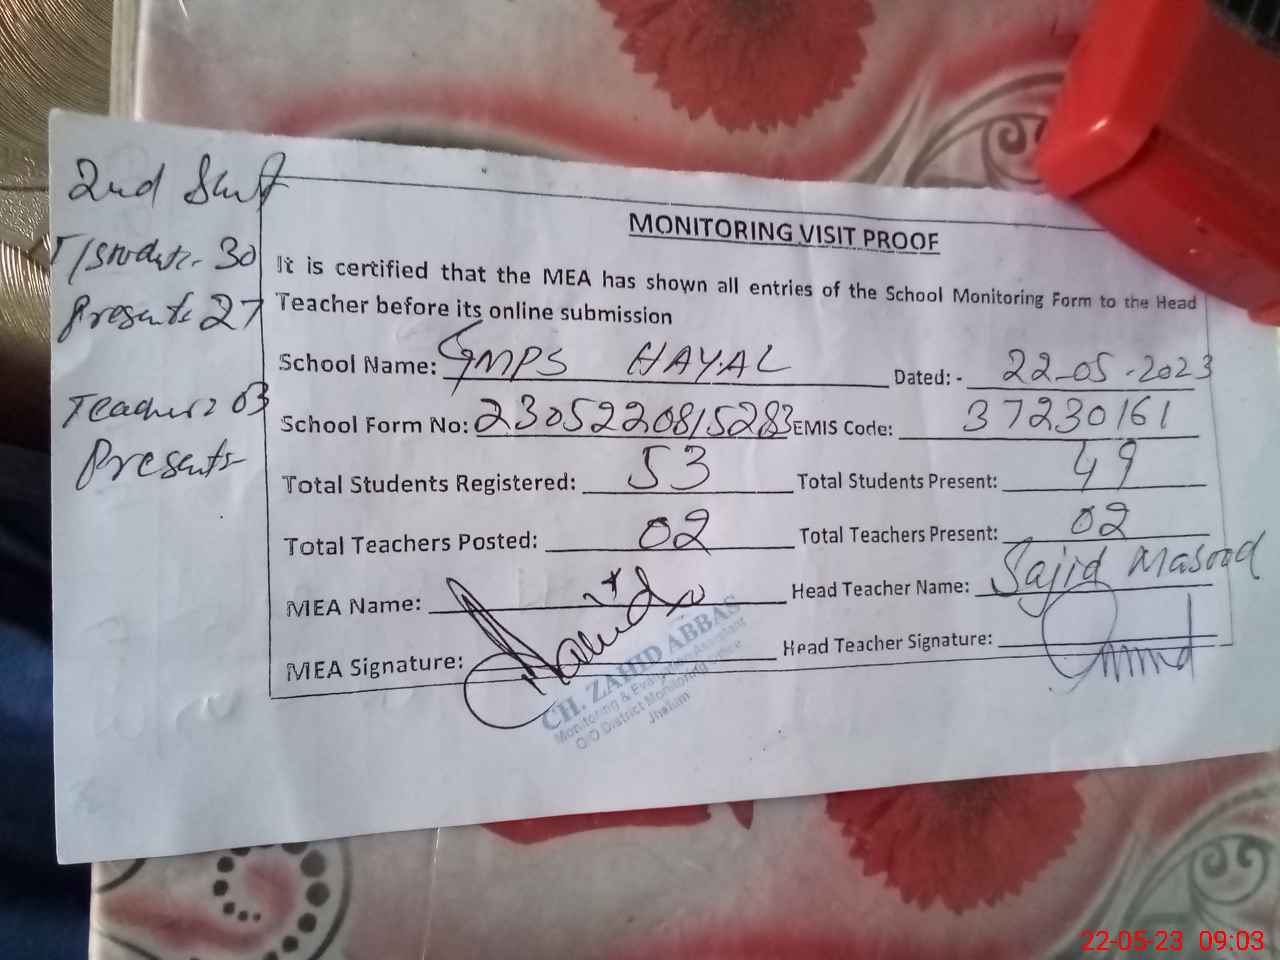 2nd Shift
T/Students. 30
Presents 27
Teachers 03
Presents
MONITORING VISIT PROOF
It is certified that the MEA has shown all entries of the School Monitoring Form to the Head
Teacher before its online submission
School Name: GMPS HAYAL Dated: - 22-05-2023
School Form No: 2305220815283 EMIS Code: 37230161
Total Students Registered: 53 Total Students Present: 49
Total Teachers Posted: 02 Total Teachers Present: 02
MEA Name: Head Teacher Name: Sajid Masood
MEA Signature: Head Teacher Signature:
CH. ZAHID ABBAS
Monitoring & Evaluation Assistant
O/O District Monitoring Office
Jhelum
22-05-23 09:03